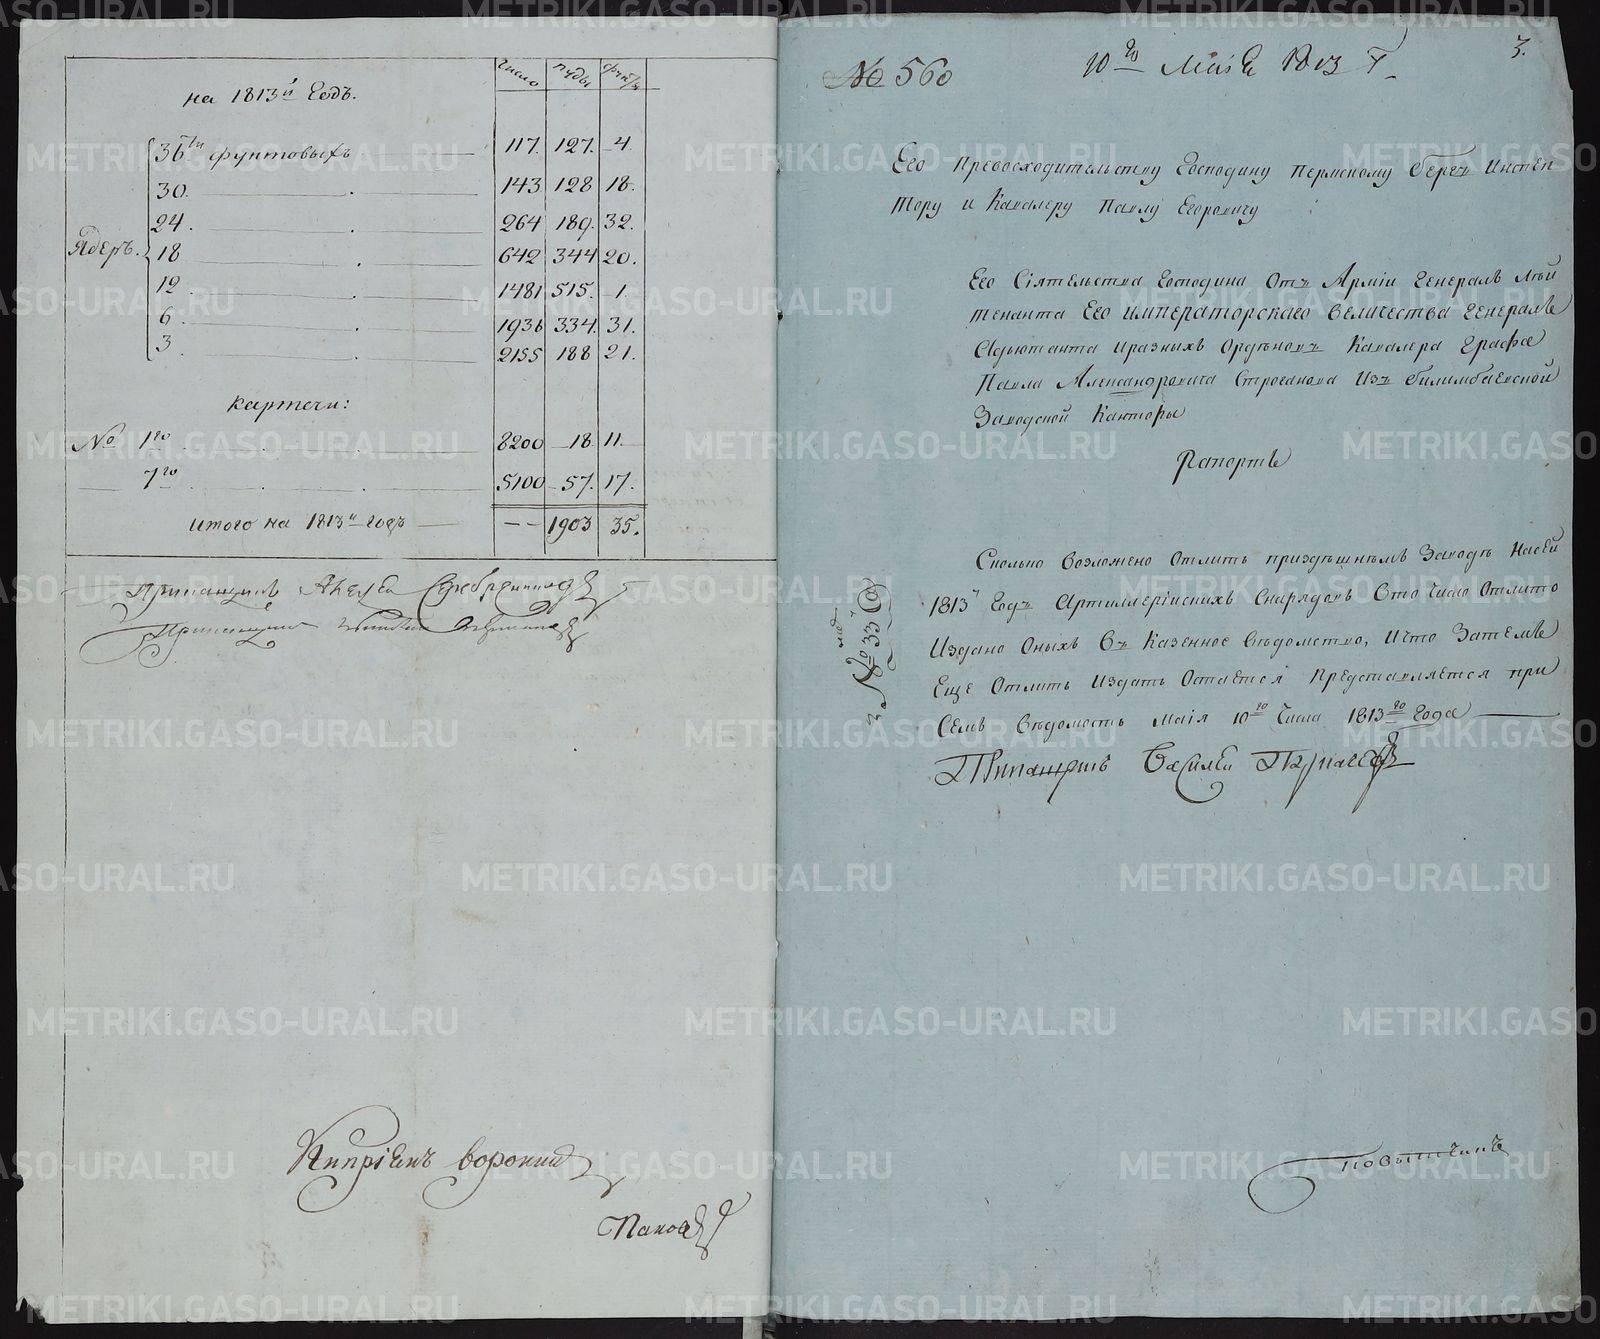 на 1813й Годъ.
число пуды фунты
Ядеръ.
36ти фунтовыхъ 117. 127. 4.
30. 143 128 18.
24. 264 189. 32.
18 642 344 20.
12 1481 515. 1.
6. 1936 334. 31.
3. 2155 188 21.
картечи:
№ 1го 8200 18 11.
7го 5100 57. 17.
итого на 1813й годъ — — 1903 35.
Прикащикъ Серебренников
Прикащикъ
Кипрiянъ Воронин
Панов
3.
№ 560
10го Маiя 1813 Г.
Его Превосходительству Господину Пермскому Бергъ Инспек
тору и Кавалеру Павлу Егоровичу
Его Сiятельства Господина Отъ Армiи Генералъ Лѣй
тенанта Его Императорскаго Величества Генералъ
Адъютанта и разныхъ Орденовъ Кавалера Графа
Павла Александровича Строганова Изъ Билимбаевской
Заводской Канторы
Рапортъ
Сколько возложено отлить приздѣшнемъ Заводѣ насей
1813й Годъ Артиллерiйскихъ Снарядовъ Сто Число Отлито
Издано Оныхъ Въ Казенное вѣдомство, Ичто Затемъ
Еще Отлить Издать Остается Представляется при
Семъ Вѣдомость Маiя 10го Числа 1813го Года
№ 33
Прикащикъ Василей
Повытчикъ
METRIKI.GASO-URAL.RU